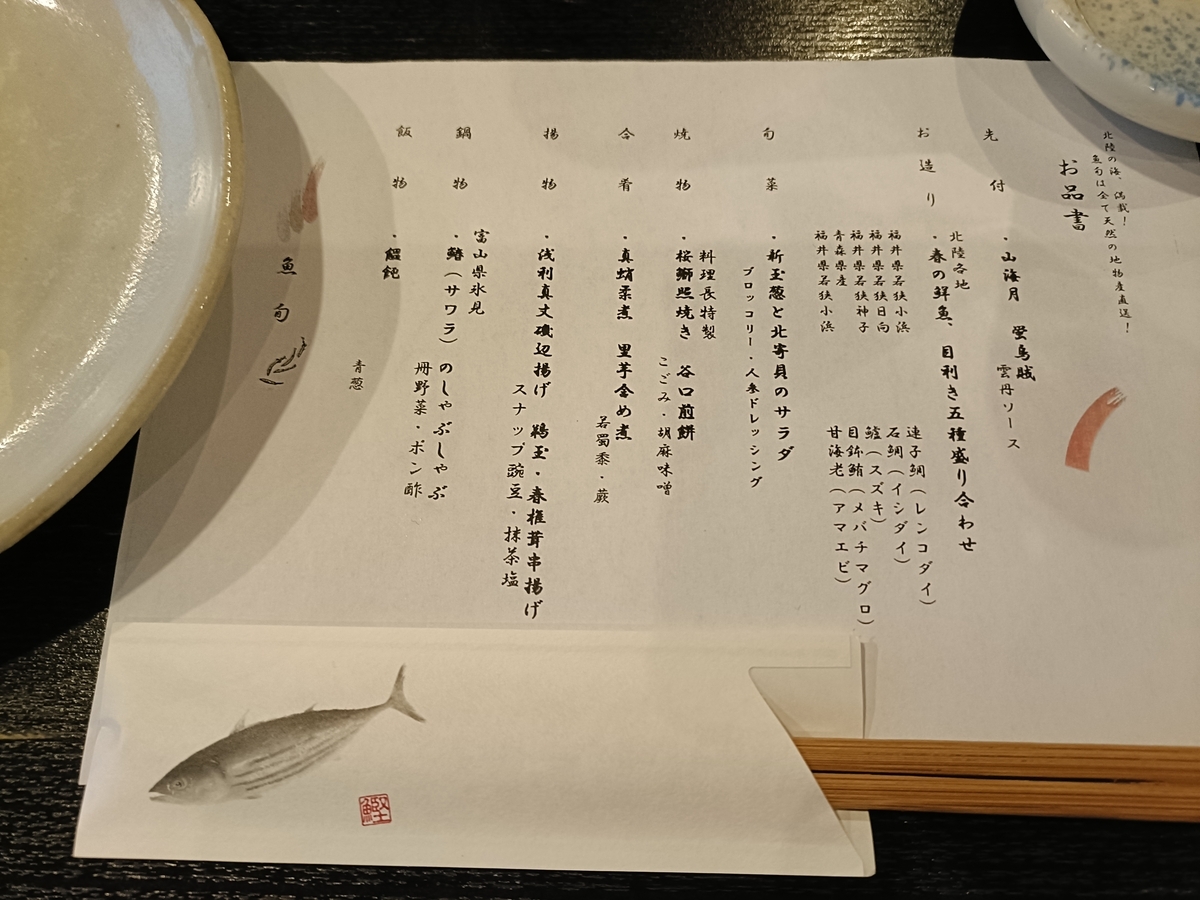 北陸の海、満載！
魚旬は全て天然の地物産直送！
お品書
先付
・山海月　蛍烏賊
雲丹ソース
お造り
北陸各地
・春の鮮魚、目利き五種盛り合わせ
福井県若狭小浜　連子鯛（レンコダイ）
福井県若狭日向　石鯛（イシダイ）
福井県若狭神子　鱸（スズキ）
青森県産　目鉢鮪（メバチマグロ）
福井県若狭小浜　甘海老（アマエビ）
旬菜
・新玉葱と北寄貝のサラダ
ブロッコリー・人参ドレッシング
焼物
料理長特製
・桜鰤照焼き　谷口煎餅
こごみ・胡麻味噌
合肴
・真蛸柔煮　里芋含め煮
若蜀黍・蕨
揚物
・浅利真丈磯辺揚げ　鶉玉・春椎茸串揚げ
スナップ豌豆・抹茶塩
鍋物
富山県氷見
・鰆（サワラ）のしゃぶしゃぶ
冊野菜・ポン酢
飯物
・饂飩
青葱
魚旬
鰹